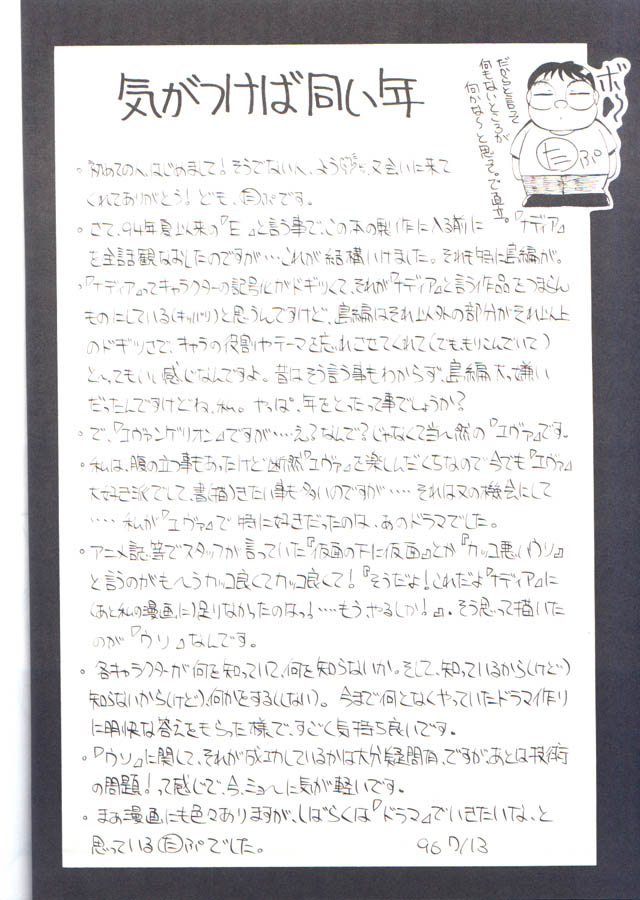 気がつけば同い年
ボ〜
だからと言って
何もないところが
何かな〜と思って。で直立。
たぷ
。初めての人、はじめまして！そうでない人、ようこそ、又会いに来て
くれてありがとう！ども、たぷです。
。さて、94年夏以来の『E』と言う事で、この本の製作に入る前に『ナディア』
を全話観なおしたのですが…これが結構いけました。それも特に島編が。
。『ナディア』ってキャラクターの記号化がドギツくて、それが『ナディア』と言う作品をつまらん
ものにしている(キッパリ)と思うんですけど、島編はそれ以外の部分がそれ以上
のドギツさで、キャラの役割やテーマを忘れさせてくれて(でも、もりこんでいて)
と〜ってもいい感じなんですよ。昔はそう言う事もわからず、島編大っ嫌い
だったんですけどね、私。やっぱ、年をとったって事でしょうか？
。で、『エヴァンゲリオン』ですが……え？なんで？じゃなくて当然の『エヴァ』です。
。私は、腹の立つ事もあったけど断然『エヴァ』を楽しんだくちなので今でも『エヴァ』
大好き派でして、書(描)きたい事も多いのですが……それは又の機会にして
……私が『エヴァ』で特に好きだったのは、あのドラマでした。
。アニメ誌等でスタッフが言っていた『仮面の下に仮面』とか『カッコ悪いウソ』
と言うのがも〜うカッコ良くてカッコ良くて！『そうだよ！これだよ『ナディア』に
(あと私の漫画に)足りなかったのはっ！……もう、やるしか！』。そう思って描いた
のが『ウソ』なんです。
。各キャラクターが何を知っていて、何を知らないか。そして、知っているから(けど)
知らないから(けど)、何かをする(しない)。今まで何となくやっていたドラマ作り
に明快な答えをもらった様で、すごく気持ち良いです。
。『ウソ』に関して、それが成功しているかは大分疑問有、ですが、あとは技術
の問題！って感じで、今、ミョ〜に気が軽いです。
。まあ漫画にも色々ありますが、しばらくは『ドラマ』でいきたいな、と
思っているたぷでした。 96 7/13